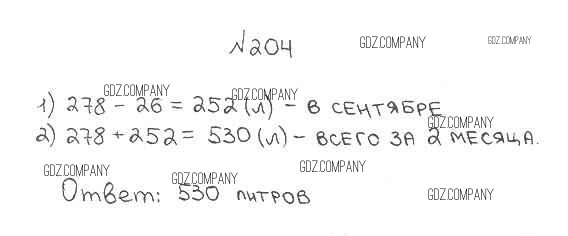 №204 GDZ.COMPANY GDZ.COMPANY
GDZ.COMPANY GDZ.COMPANY
1) 278 - 26 = 252 (л) - в сентябре
GDZ.COMPANY
2) 278 + 252 = 530 (л) - всего за 2 месяца.
GDZ.COMPANY GDZ.COMPANY GDZ.COMPANY
Ответ: 530 литров GDZ.COMPANY